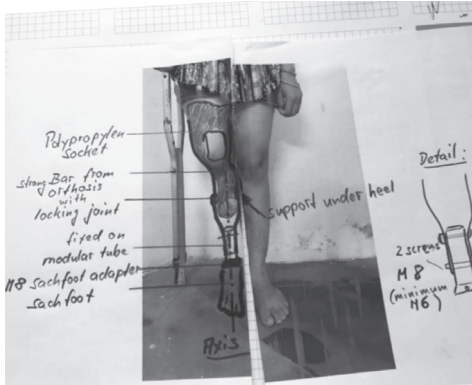 Polypropylen
socket
strong Bar from
orthosis
with
locking joint
fixed on
modular tube
M8 sachfoot adapter
sachfoot
support under heel
Axis
Detail:
2 screws
M8
(minimum
M6)